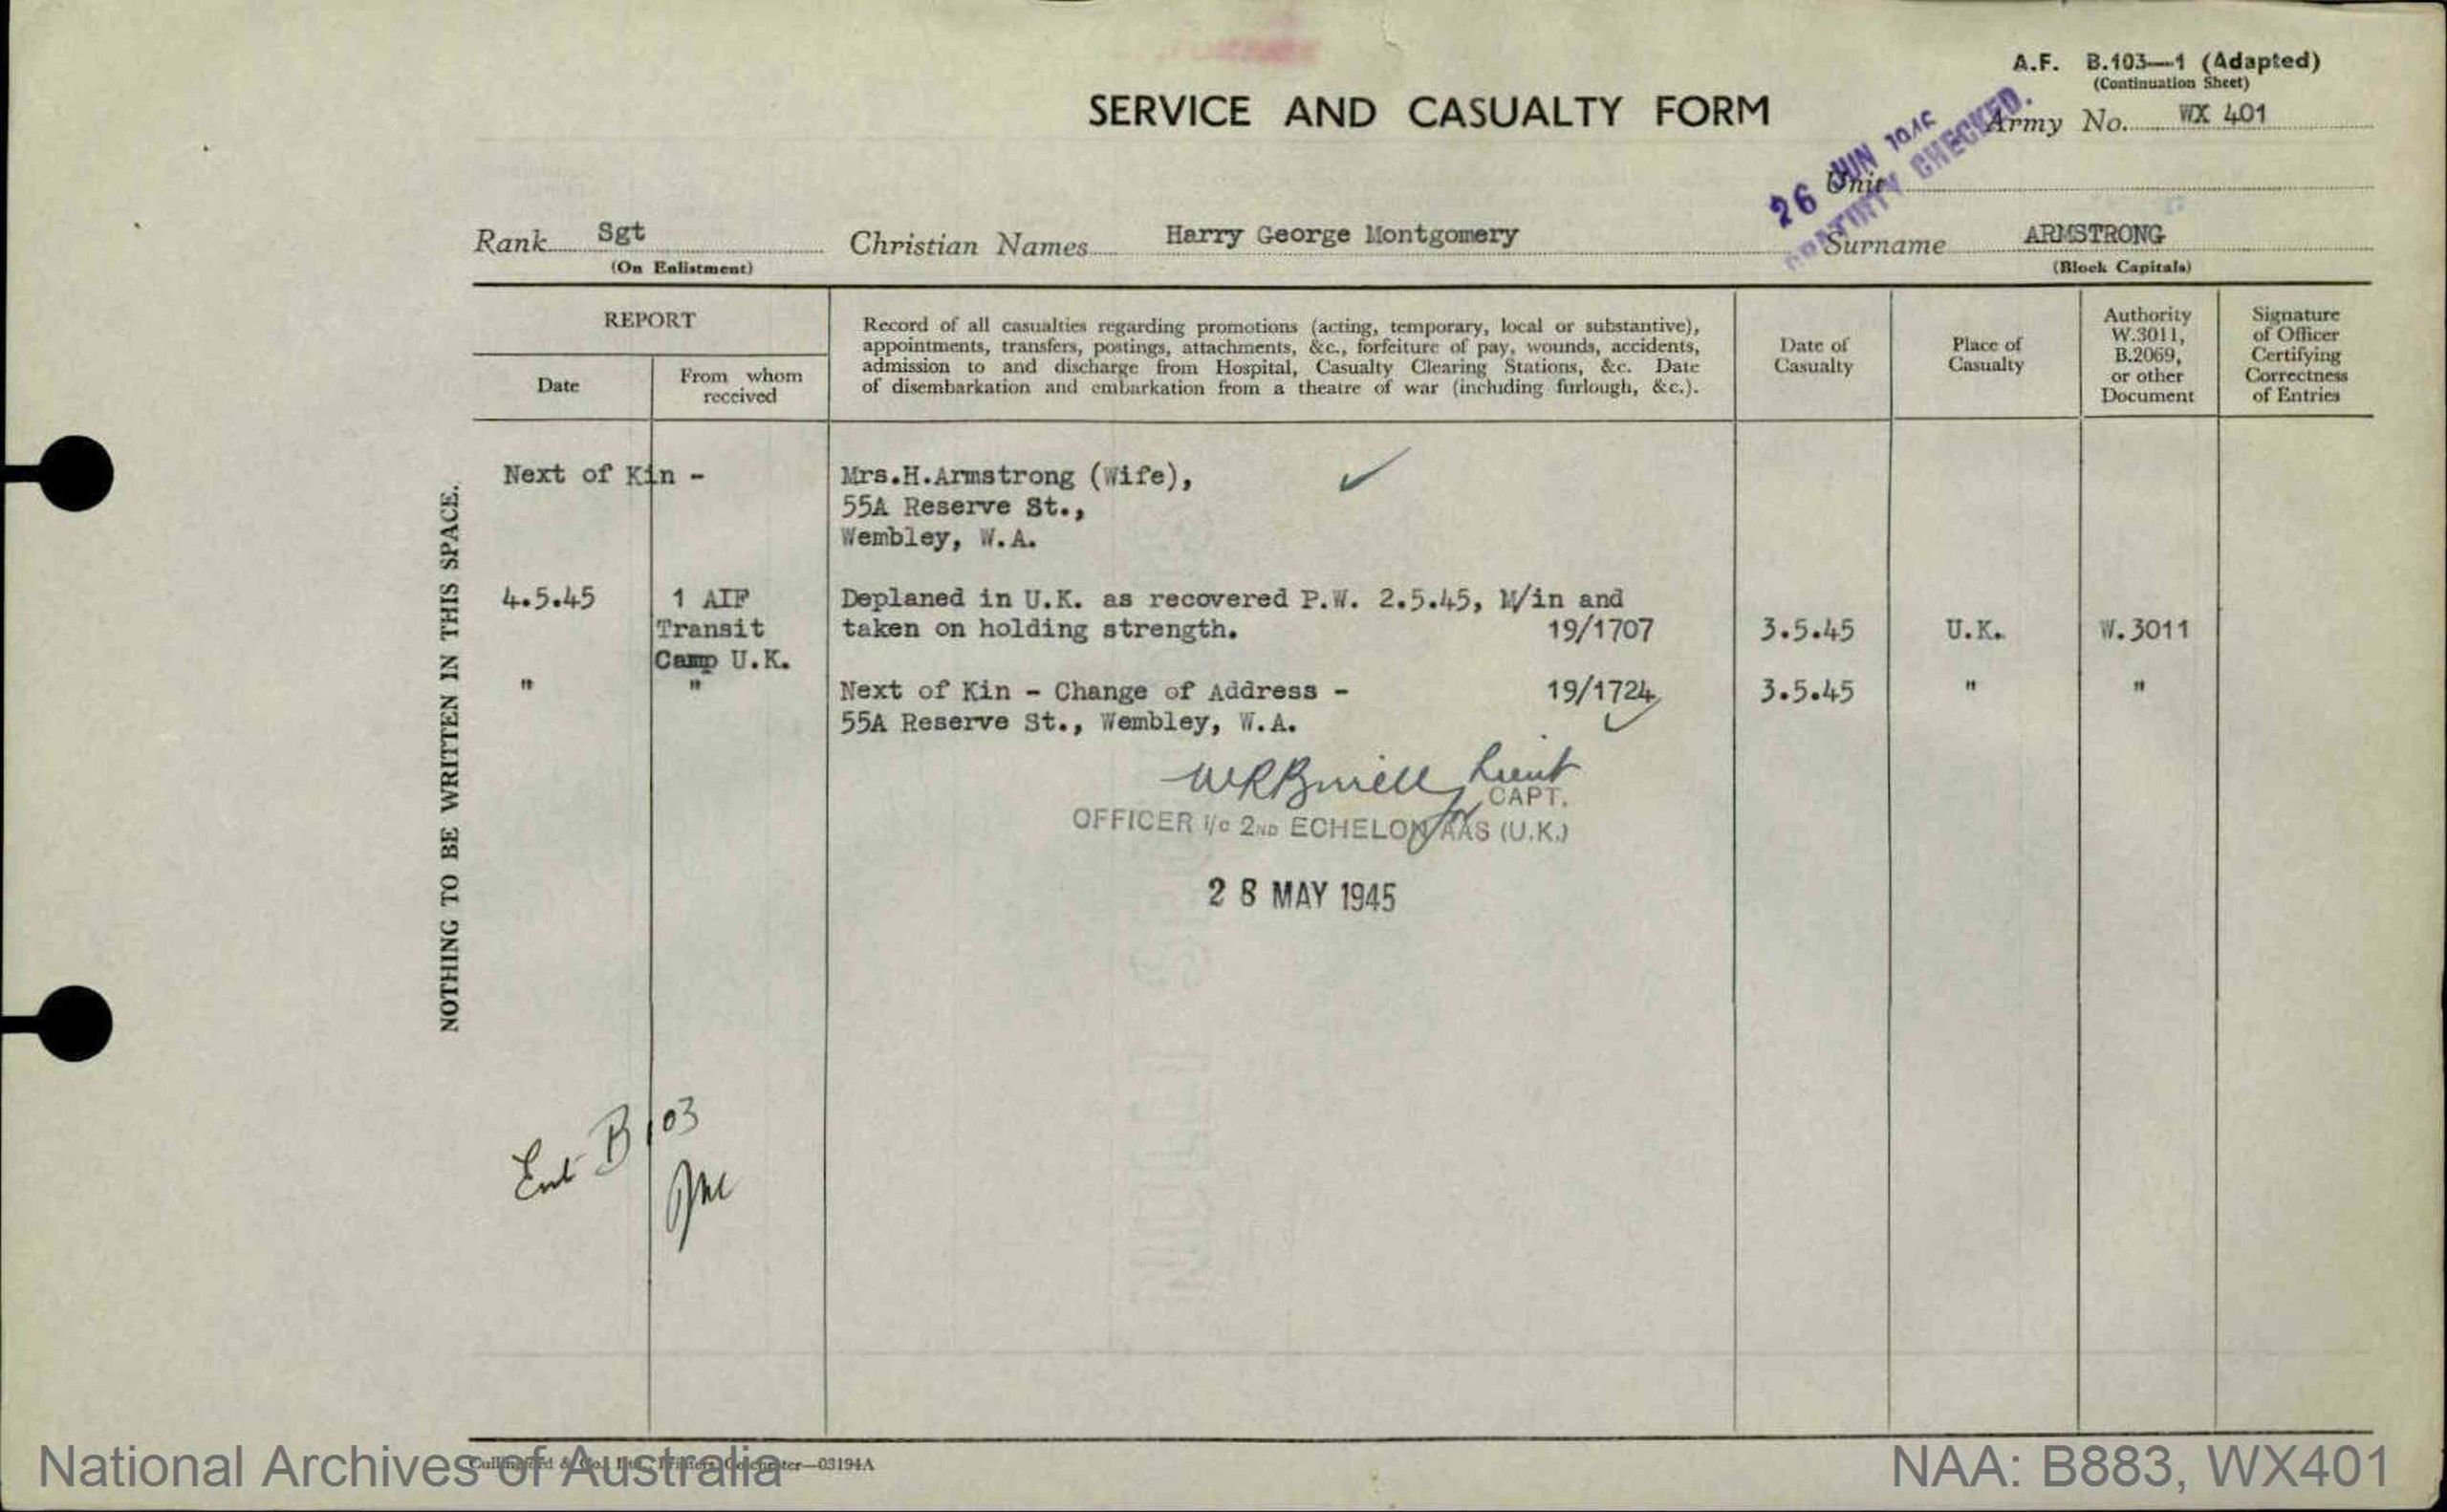 A.F. B.103—1 (Adapted)
(Continuation Sheet)
SERVICE AND CASUALTY FORM
Army No. WX 401
26 JUN 1945
CHECKED.
Unit
Rank Sgt
(On Enlistment)
Christian Names Harry George Montgomery
Surname ARMSTRONG
(Block Capitals)
REPORT
Date
From whom
received
Record of all casualties regarding promotions (acting, temporary, local or substantive),
appointments, transfers, postings, attachments, &c., forfeiture of pay, wounds, accidents,
admission to and discharge from Hospital, Casualty Clearing Stations, &c. Date
of disembarkation and embarkation from a theatre of war (including furlough, &c.).
Date of
Casualty
Place of
Casualty
Authority
W.3011,
B.2069,
or other
Document
Signature
of Officer
Certifying
Correctness
of Entries
NOTHING TO BE WRITTEN IN THIS SPACE.
Next of Kin - Mrs.H.Armstrong (Wife),
55A Reserve St.,
Wembley, W.A.
4.5.45 1 AIF Deplaned in U.K. as recovered P.W. 2.5.45, M/in and
Transit taken on holding strength. 19/1707 3.5.45 U.K. W.3011
Camp U.K.
" " Next of Kin - Change of Address - 19/1724 3.5.45 " "
55A Reserve St., Wembley, W.A.
Lieut
CAPT.
OFFICER i/c 2ND ECHELON AAS (U.K.)
28 MAY 1945
Ent B103
National Archives of Australia
03194A
NAA: B883, WX401